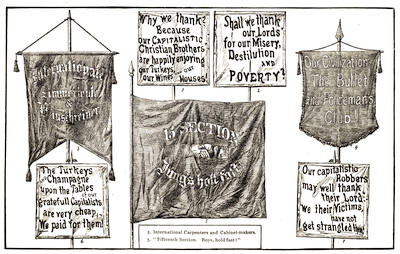 Why we thank?
Because
our CAPITALISTIC
Christian Brothers
are happily enjoying
our Turkeys, our
our Wines our Houses!
Shall we thank
our "Lords"
for our Misery,
Destilution
AND
POVERTY?
International
Zimmerleute
&
Bauschreiner
Our Civilization:
The Bullet
and Policemans
Club!
15 SECTION
Jungs holt fast
The Turkeys
and Champagne
upon the Tables
of our
gratefull Capitalists
are very cheap,
We paid for them!
Our capitalistic
Robbers
may well thank
their Lord:
we their Victims,
have not
yet strangled them
3. International Carpenters and Cabinet-makers.
5. "Fifteenth Section. Boys, hold fast!"